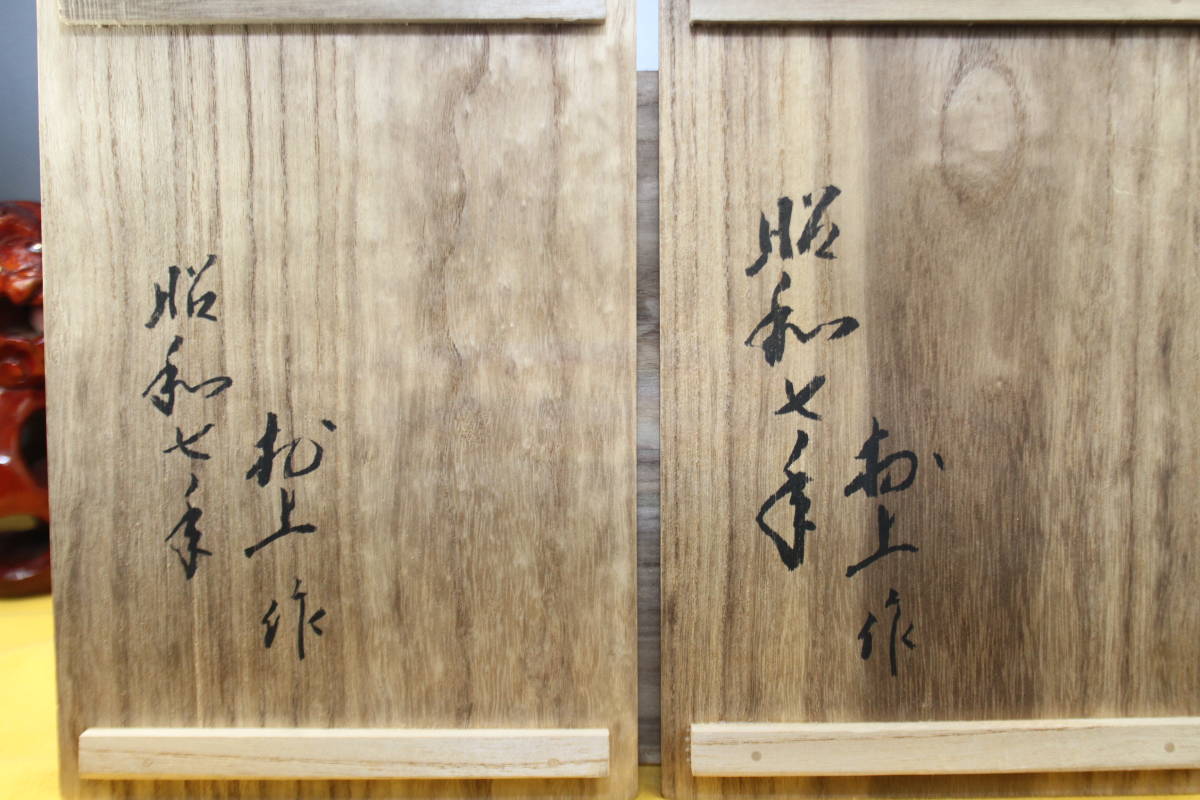 村上作
昭和七年
村上作
昭和七年